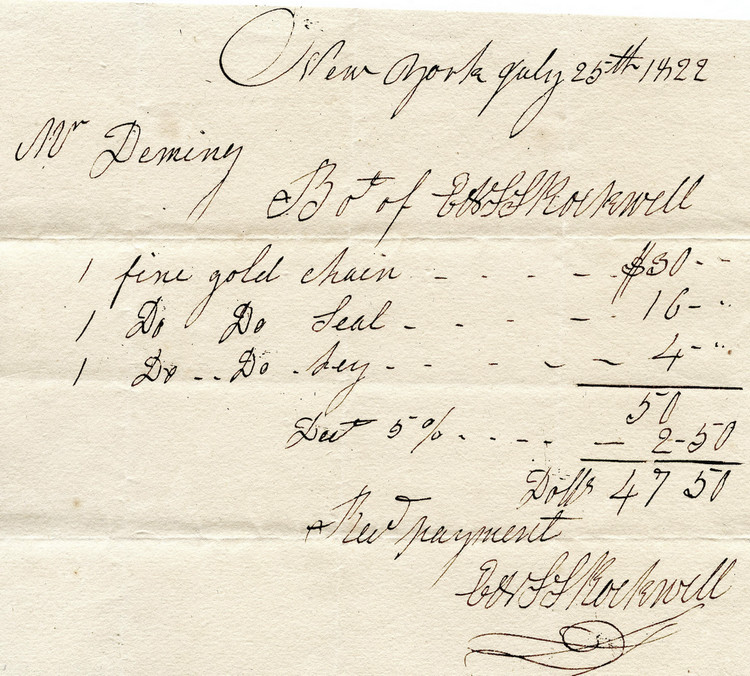 New York July 25th 1822
Mr Deming
Bot of E & S S Rockwell
1 fine gold chain - - - - $30 - -
1 Do Do Seal - - - - 16 - "
1 Do - - Do - key - - - - 4 - "
50
Dect 5% - - - - — 2-50
Dolls 47 50
Recd payment
E & S S Rockwell